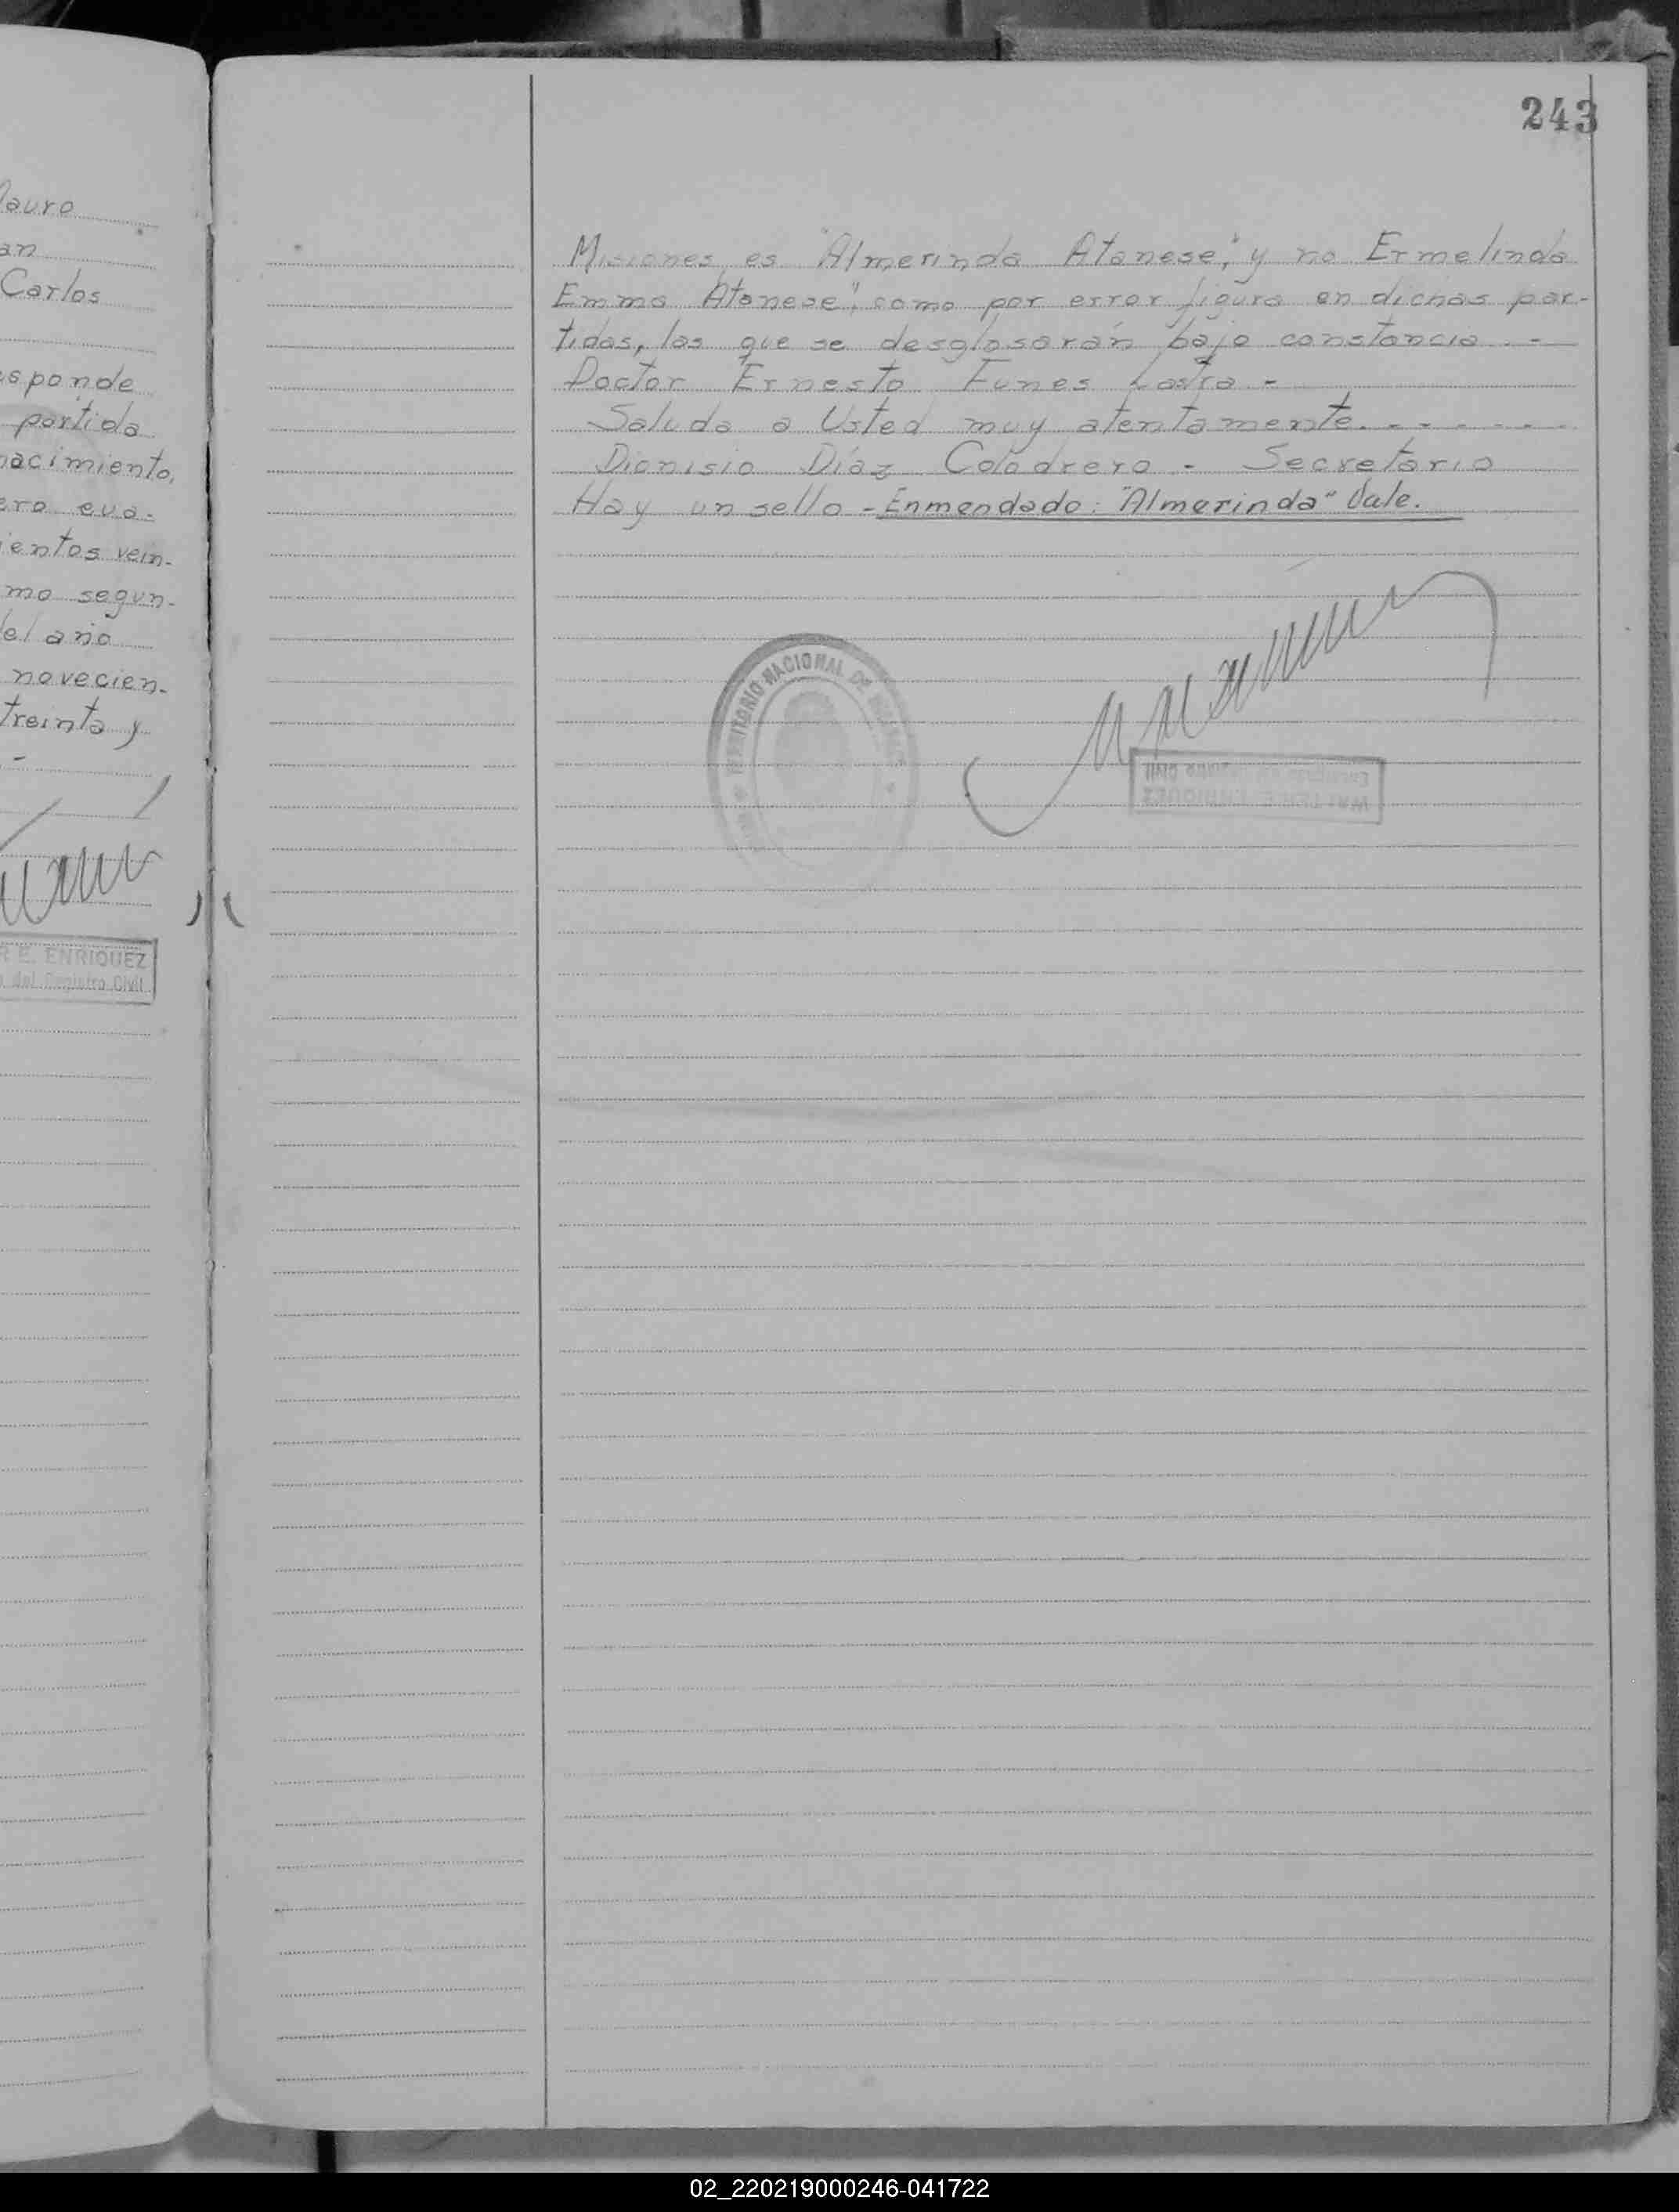 243
auro
an
Carlos
sponde
partida
nacimiento,
ero eva-
ientos vein-
mo segun-
del año
novecien-
treinta y
R E. ENRIQUEZ
del Registro Civil
Misiones, es "Almerinda Atanese", y no Ermelinda
Emma Atanese", como por error figura en dichas par-
tidas, las que se desglosarán bajo constancia.-
Doctor Ernesto Funes Lastra -
Saluda a Usted muy atentamente.- - - - - -
Dionisio Díaz Colodrero - Secretario
Hay un sello - Enmendado: "Almerinda" Vale.
TERRITORIO NACIONAL DE MISIONES
Encargado del Registro Civil
WALTER E. ENRIQUEZ
02_220219000246-041722